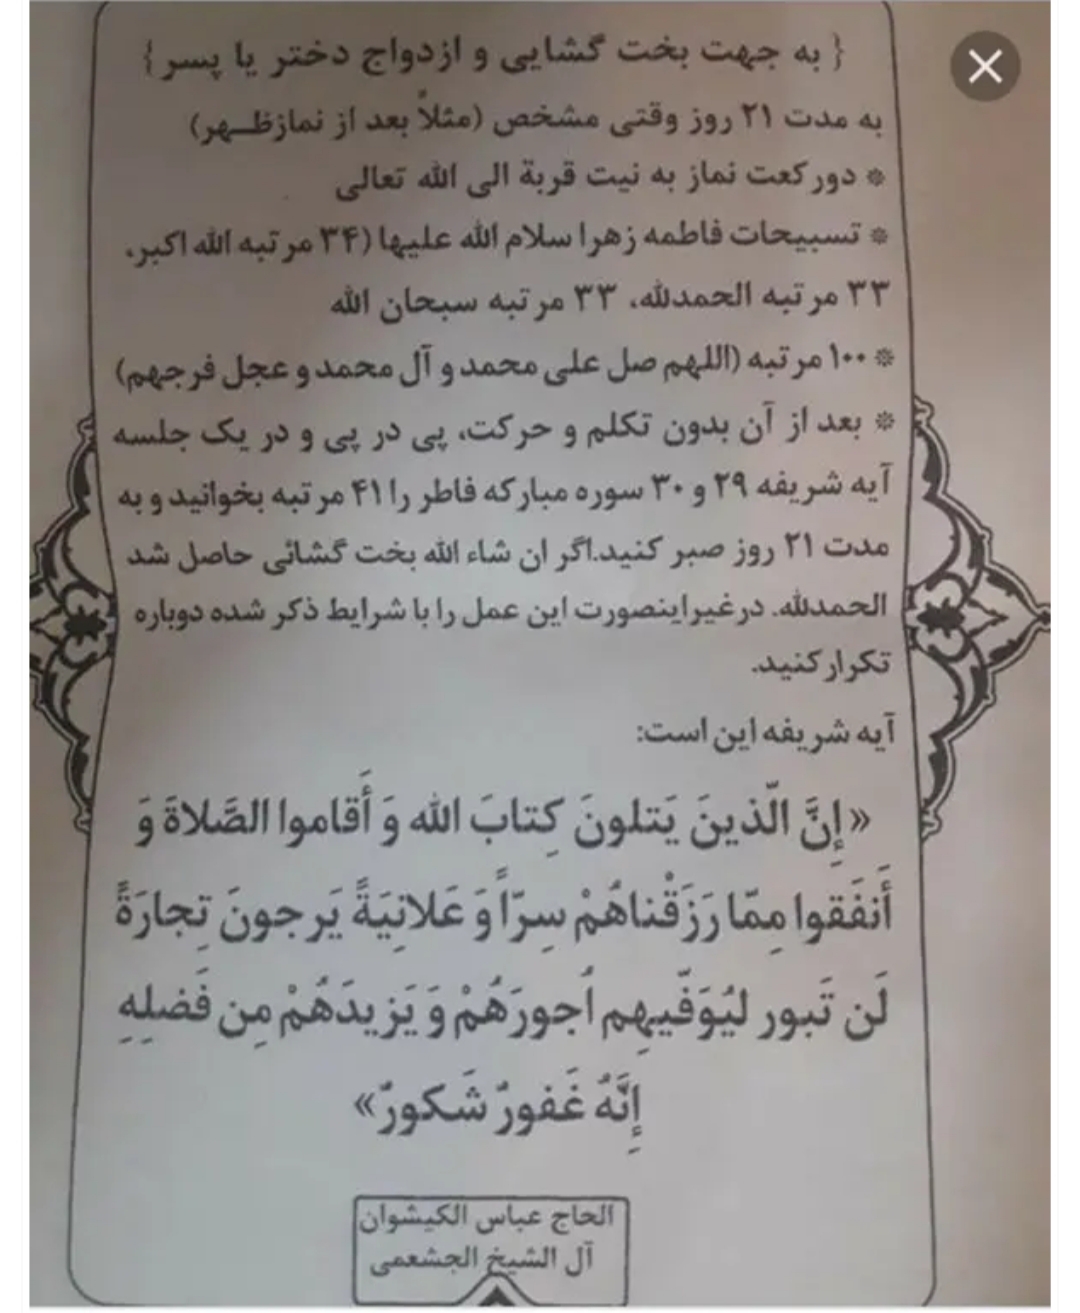 { به جهت بخت گشایی و ازدواج دختر یا پسر }
به مدت ۲۱ روز وقتی مشخص (مثلاً بعد از نمازظـهر)
* دورکعت نماز به نیت قربة الی الله تعالی
* تسبیحات فاطمه زهرا سلام الله علیها (۳۴ مرتبه الله اکبر،
۳۳ مرتبه الحمدلله، ۳۳ مرتبه سبحان الله
* ۱۰۰ مرتبه (اللهم صل علی محمد و آل محمد و عجل فرجهم)
* بعد از آن بدون تکلم و حرکت، پی در پی و در یک جلسه
آیه شریفه ۲۹ و ۳۰ سوره مبارکه فاطر را ۴۱ مرتبه بخوانید و به
مدت ۲۱ روز صبر کنید.اگر ان شاء الله بخت گشائی حاصل شد
الحمدلله. درغیراینصورت این عمل را با شرایط ذکر شده دوباره
تکرارکنید.
آیه شریفه این است:
«إِنَّ الّذینَ یَتلونَ کِتابَ الله وَ أَقاموا الصَّلاةَ وَ
أَنفَقوا مِمّا رَزَقْناهُمْ سِرّاً وَ عَلانِیَةً یَرجونَ تِجارَةً
لَن تَبور لیُوَفّیهِم اُجورَهُمْ وَ یَزیدَهُمْ مِن فَضلِهِ
إِنَّهُ غَفورٌ شَکورٌ»
الحاج عباس الکیشوان
آل الشیخ الجشعمی